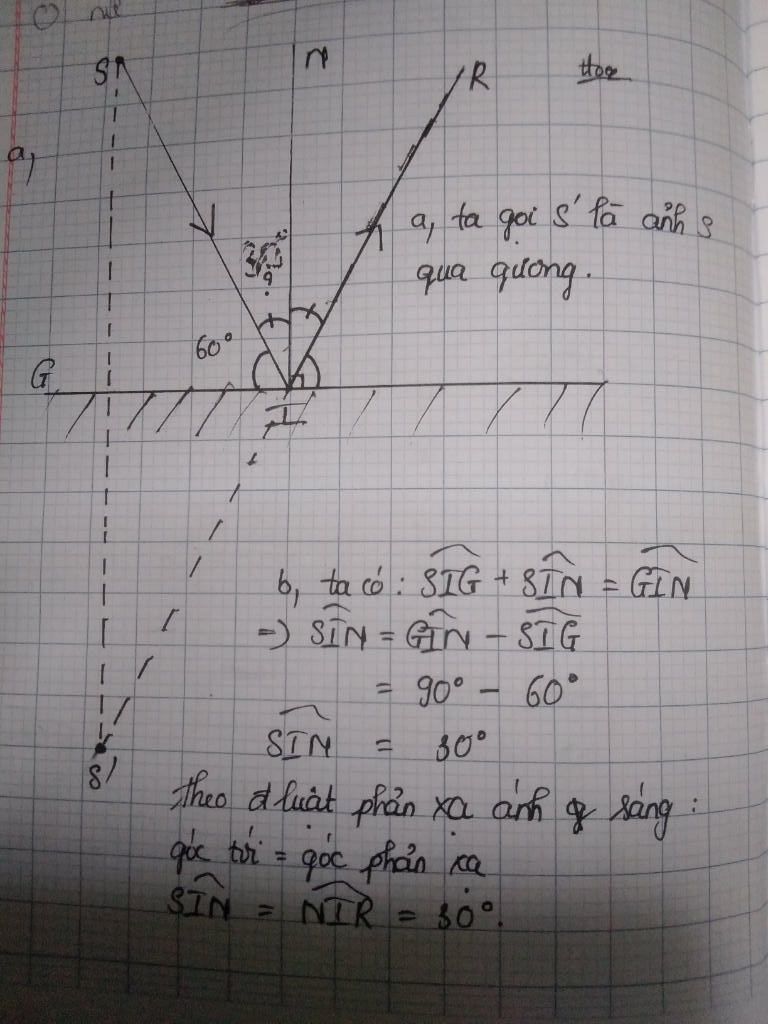 S
N
R
a,
a, ta gọi S' là ảnh S
qua gương.
30°
60°
G
I
b, ta có: SIG + SIN = GIN
=> SIN = GIN - SIG
= 90° - 60°
SIN = 30°
S'
Theo đ luật phản xạ ánh sáng:
góc tới = góc phản xạ
SIN = NIR = 30°.